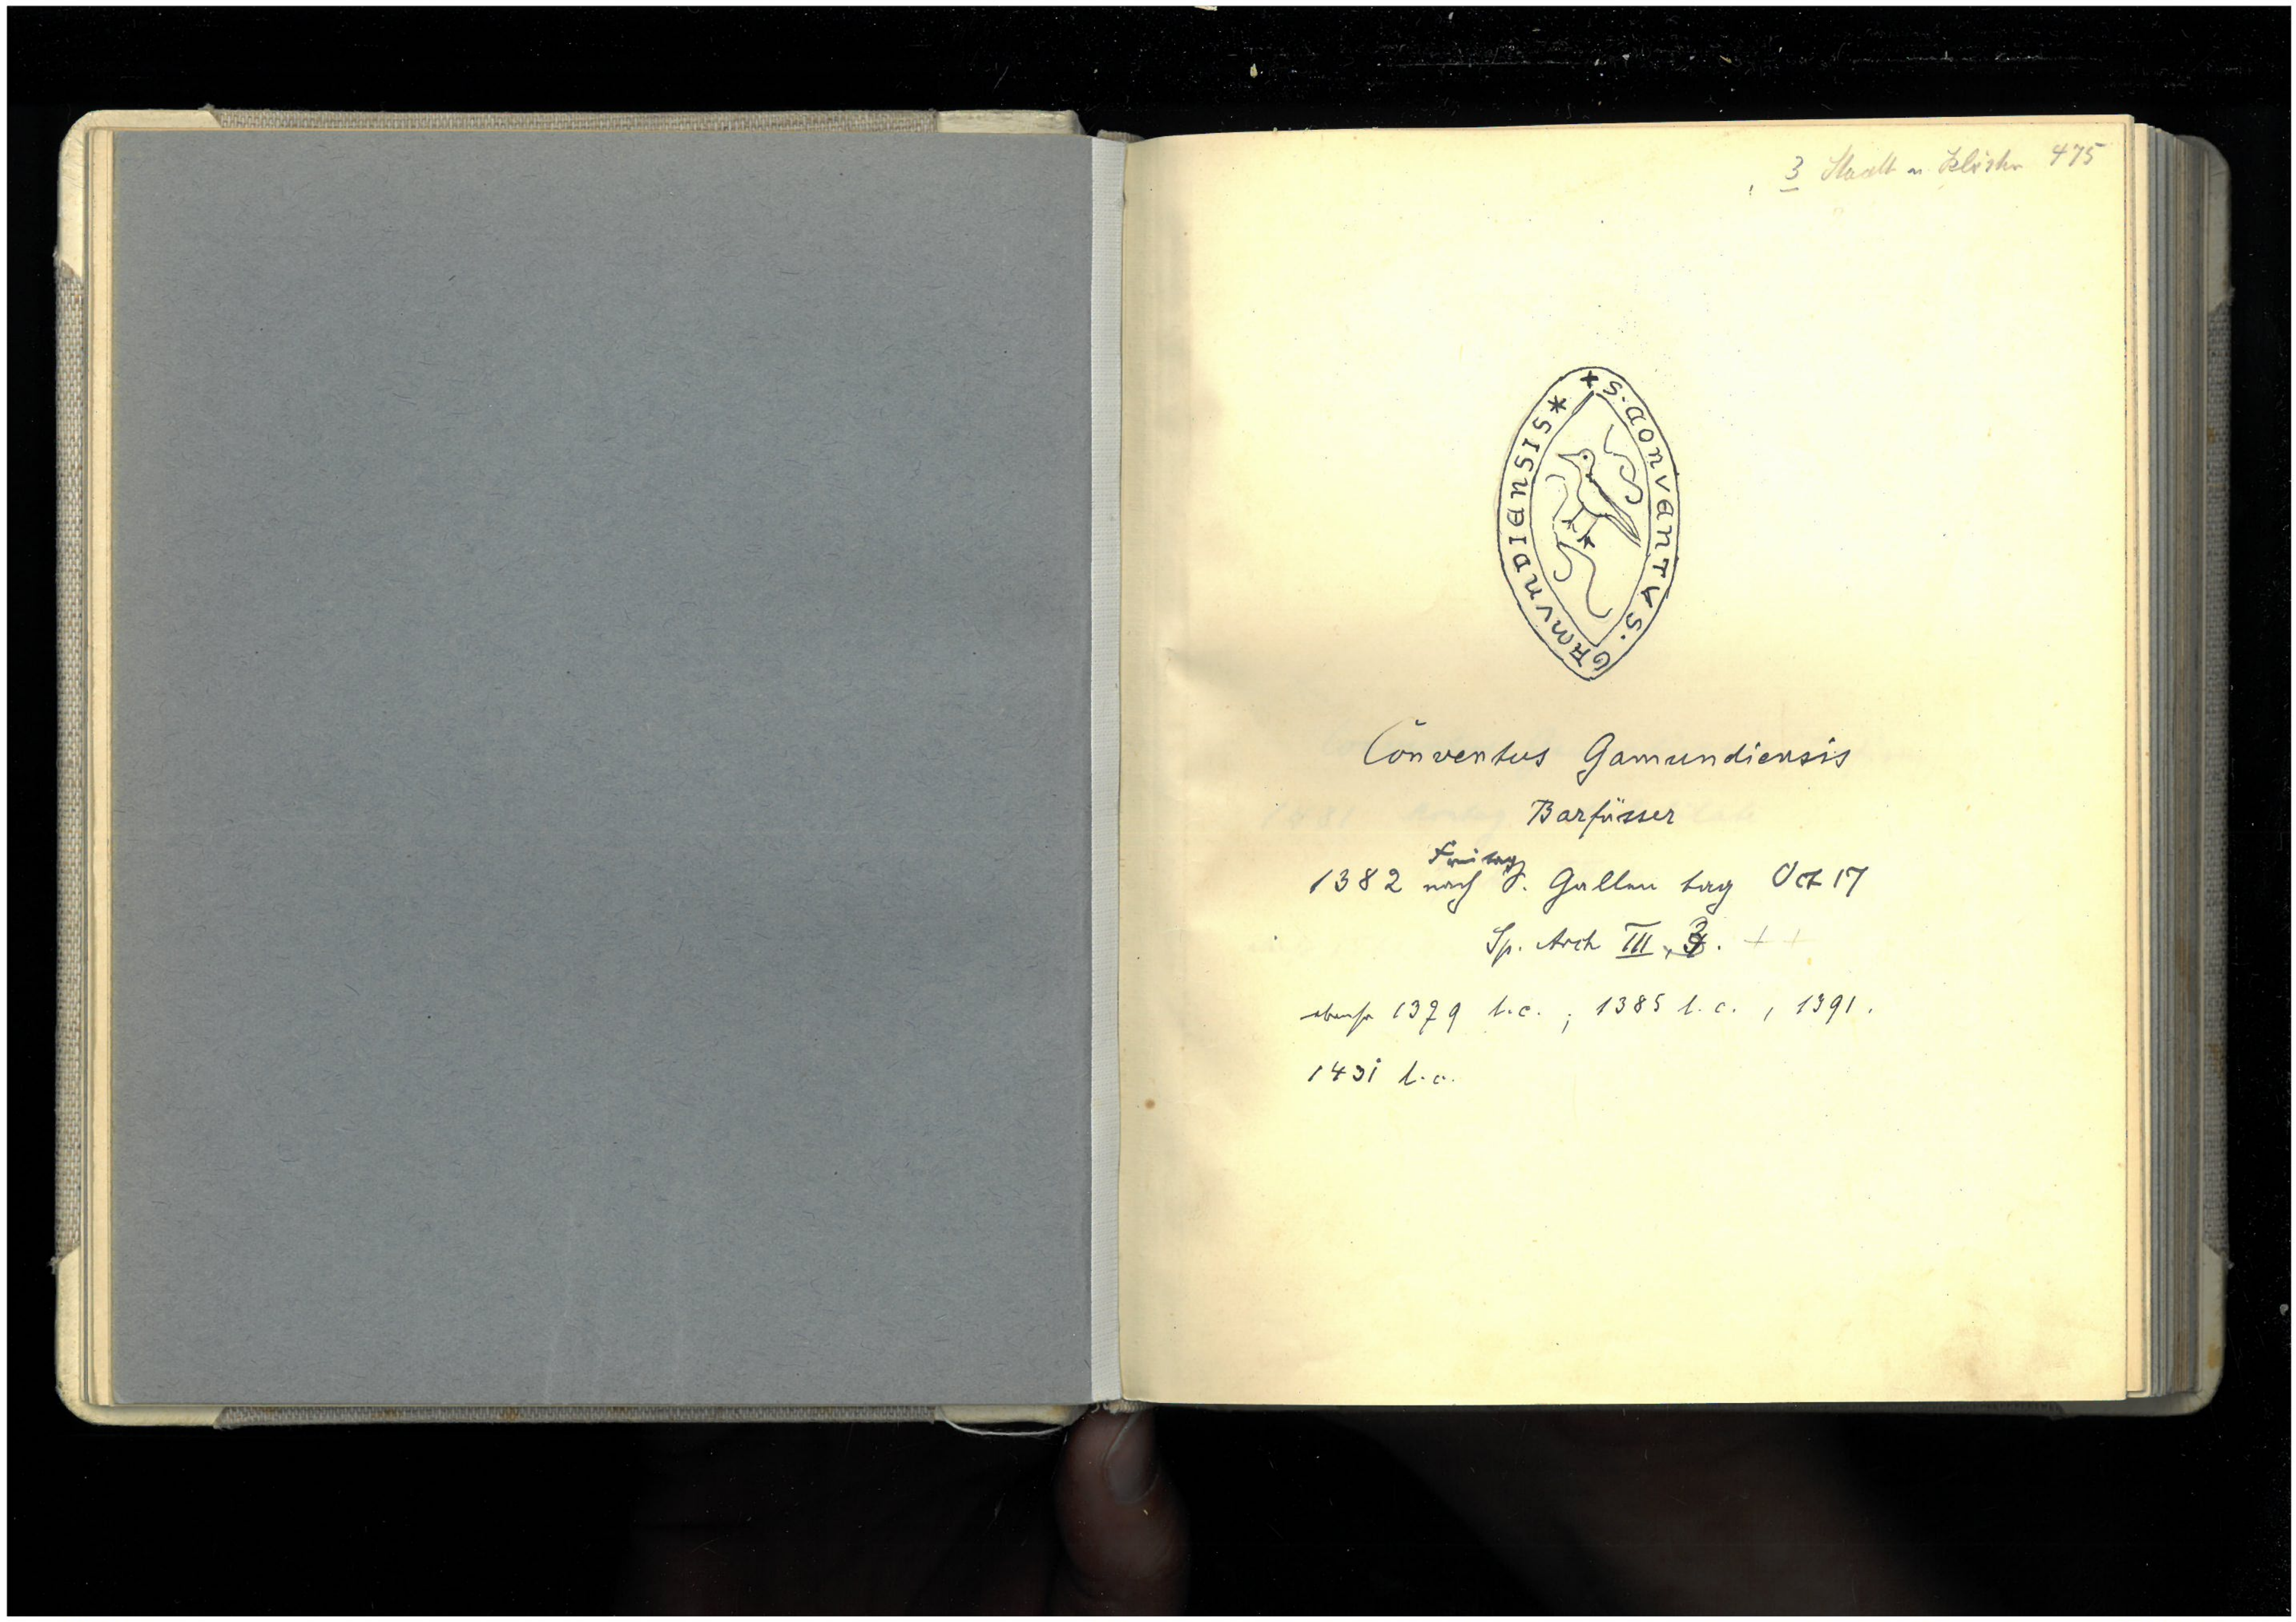 3 Stadt u Klöster 475
* S · CONVENTVS · GAMVNDIENSIS *
Conventus Gamundiensis
Barfüsser
Freitag
1382 nach S. Gallen tag Oct 17
Sp. Arch III, 3. ++
ebenso 1379 l.c. ; 1385 l.c. , 1391.
1431 l.c.